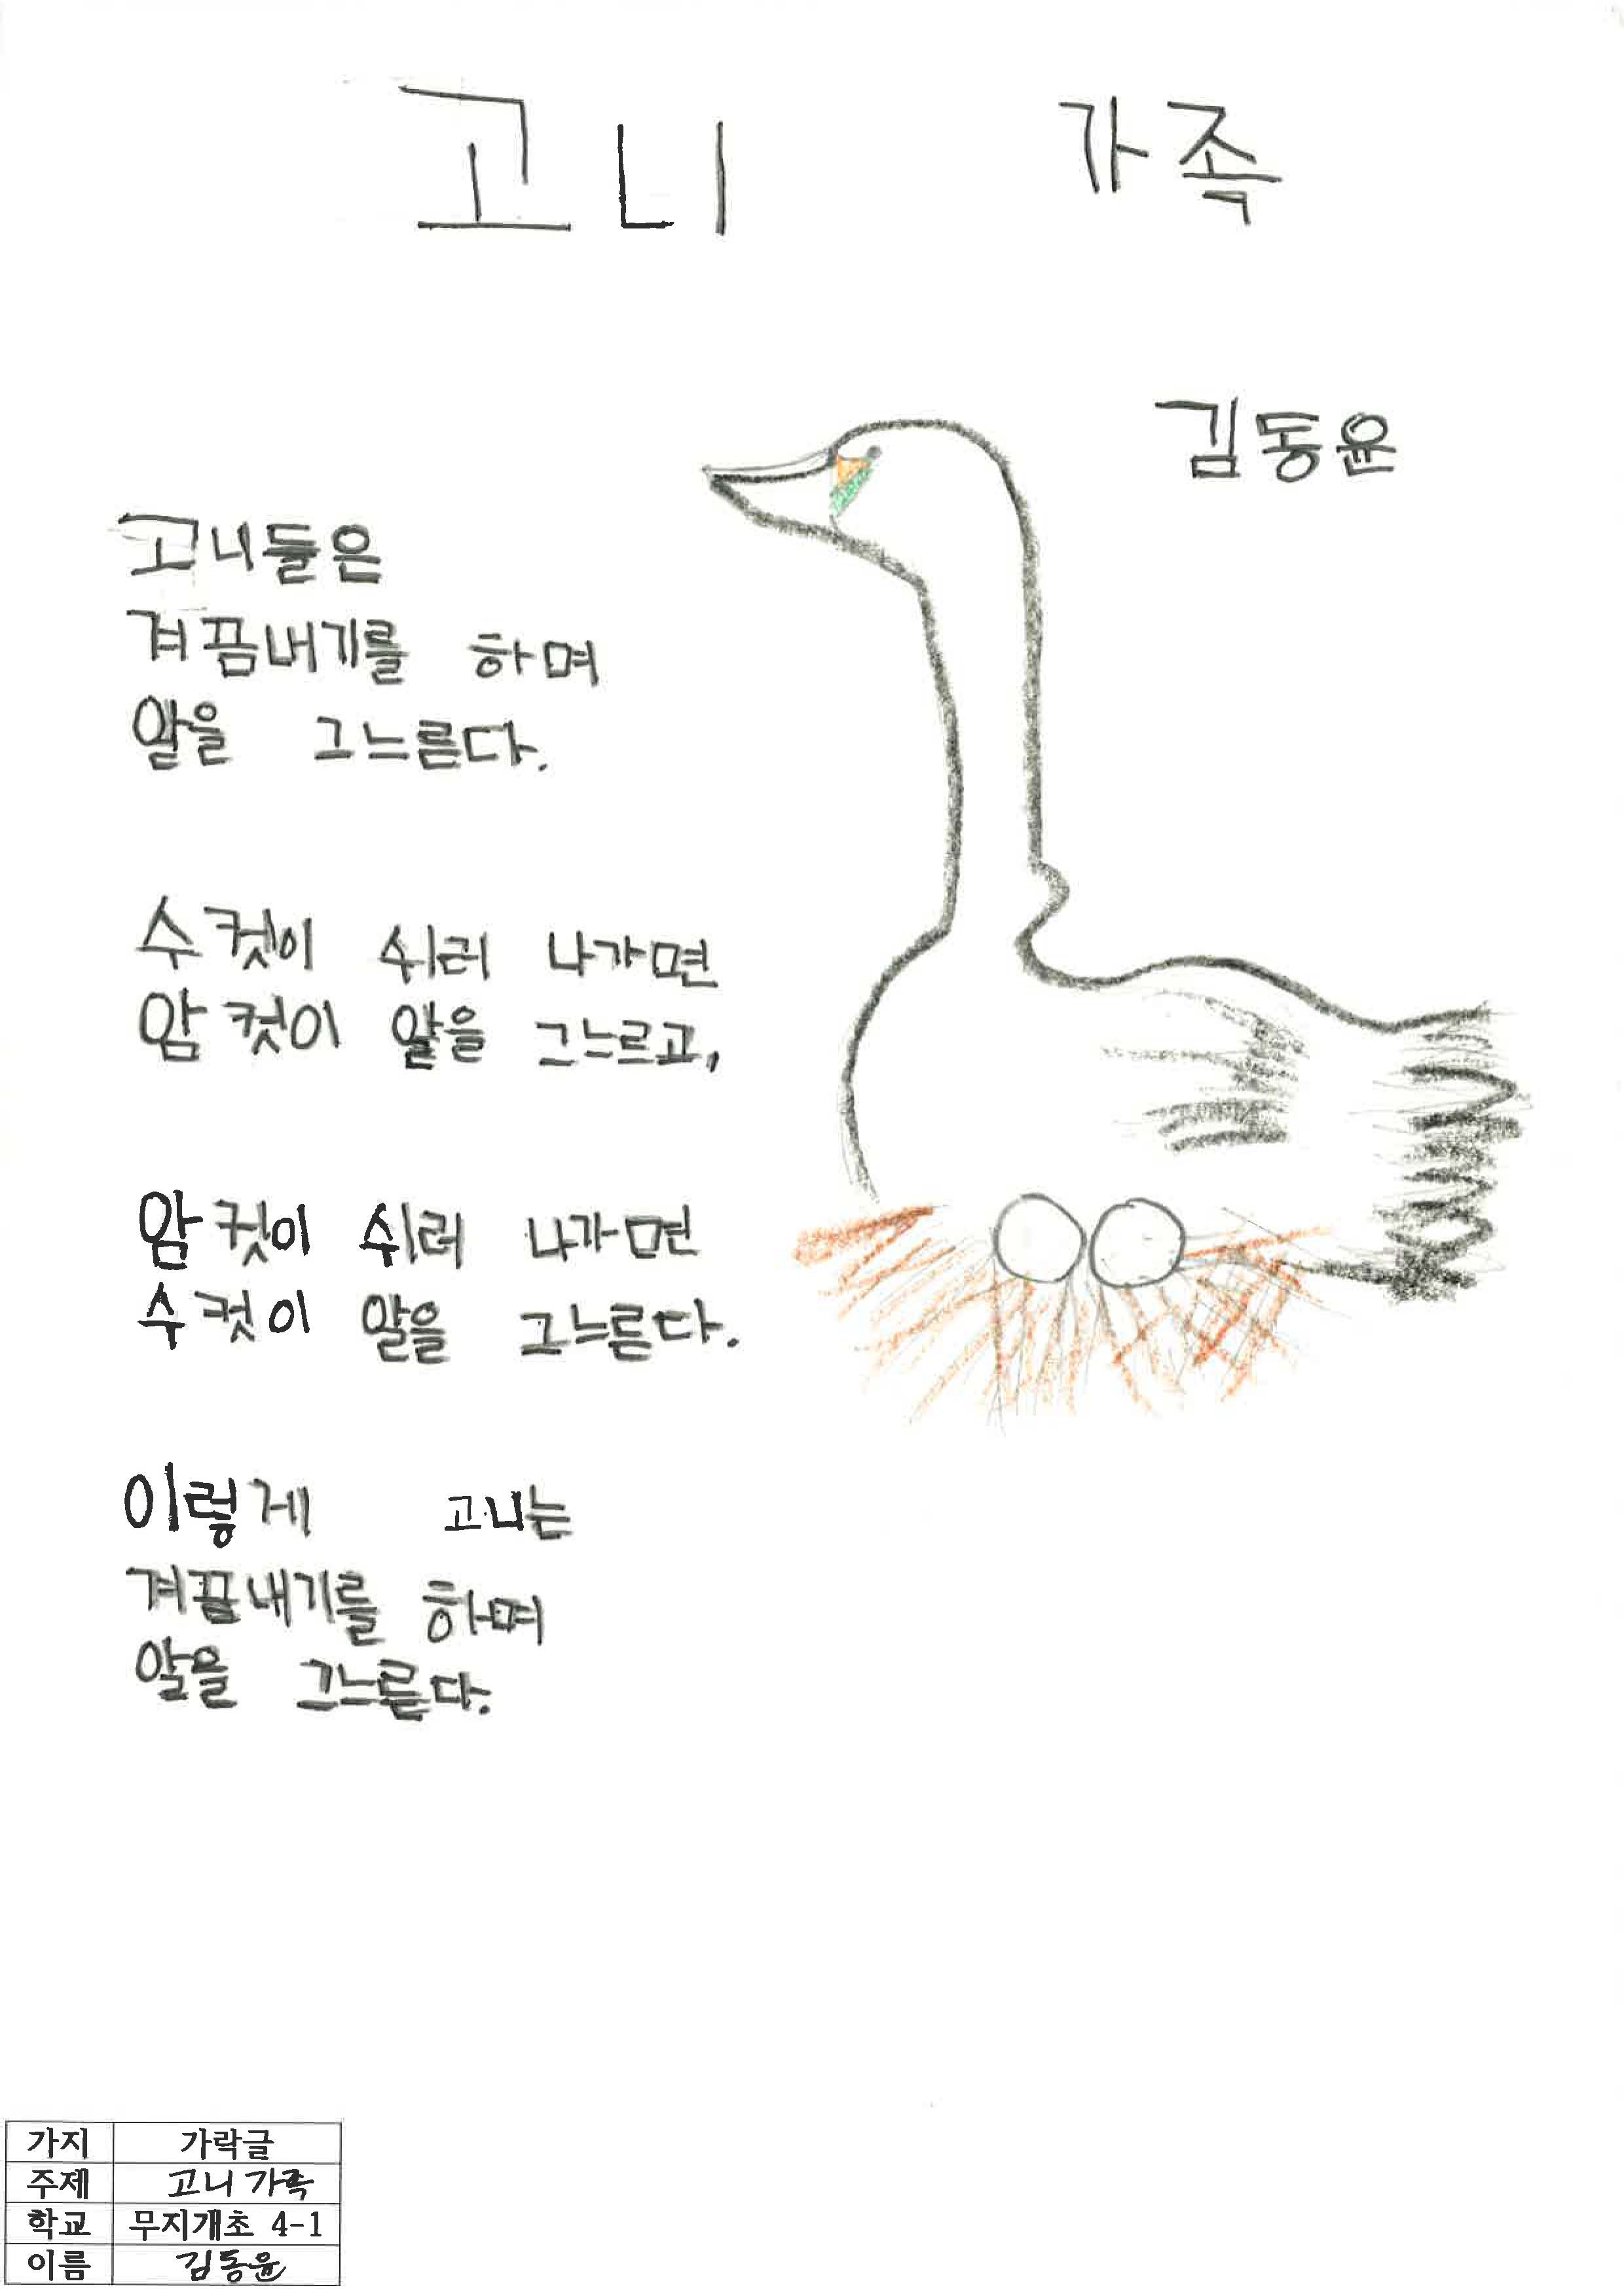 고니 가족
김동윤
고니들은
겨끔내기를 하며
알을 그느른다.
수컷이 쉬러 나가면
암컷이 알을 그느르고,
암컷이 쉬러 나가면
수컷이 알을 그느른다.
이렇게 고니는
겨끔내기를 하며
알을 그느른다.
가지 가락글
주제 고니 가족
학교 무지개초 4-1
이름 김동윤